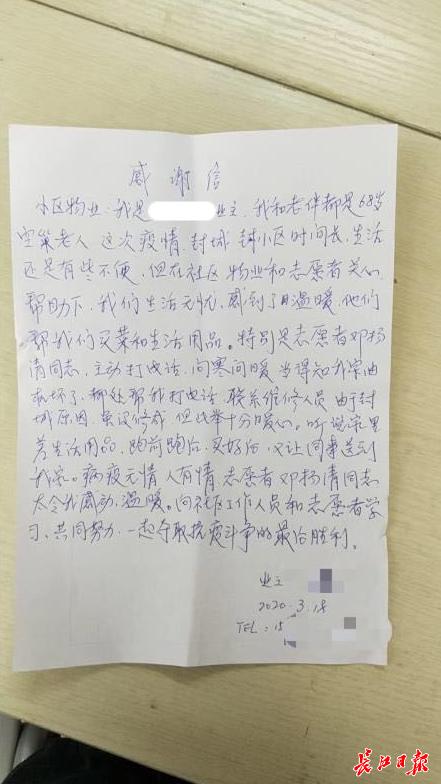 感谢信
小区物业：我是 业主，我和老伴都是68岁
空巢老人 这次疫情，封城 封小区时间长，生活
还是有些不便，但在社区 物业和志愿者关心
帮助下，我们生活无忧，感到了温暖，他们
帮我们买菜和生活用品。特别是志愿者邓杨
清同志，主动打电话，问寒问暖 当得知我家油
烟坏了，都处帮我打电话，联系维修人员 由于封
城原因，虽没修成 但此举十分暖心。听说家里
差生活用品，跑前跑后，买好后，又让同事送到
我家。病疫无情 人有情 志愿者邓杨清同志
太令我感动，温暖。向社区工作人员和志愿者学
习、共同努力，一起夺取抗疫斗争的最后胜利。
业主
2020.3.18
TEL：15
长江日报